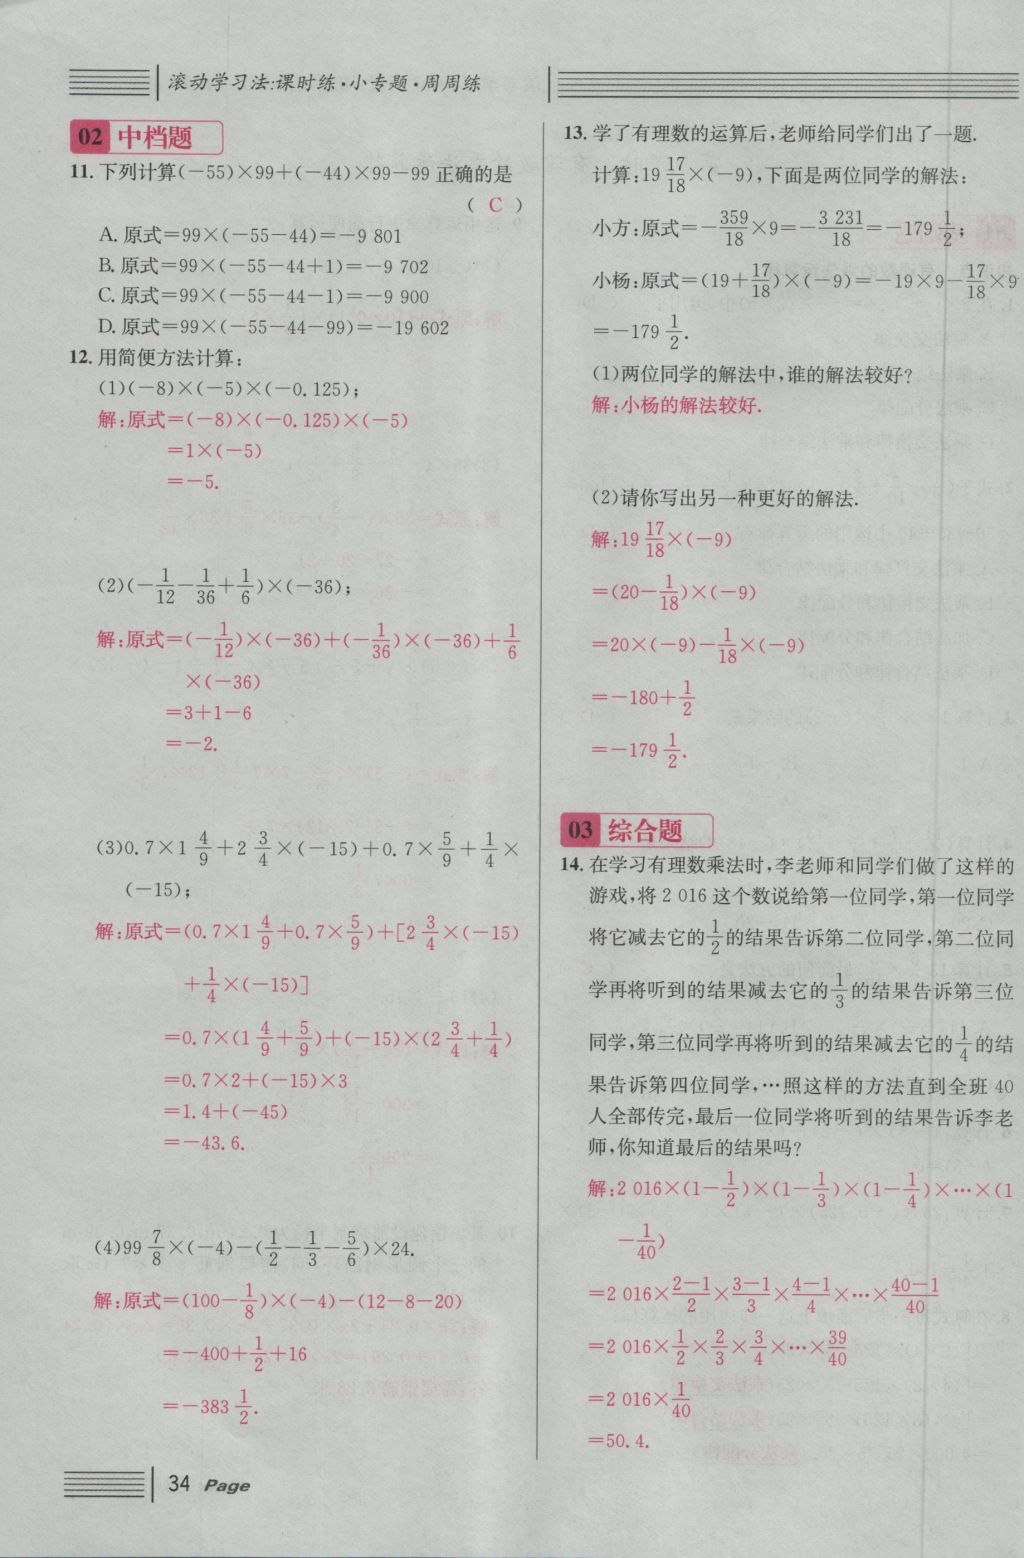 滚动学习法:课时练·小专题·周周练
02 中档题
11. 下列计算(-55)×99+(-44)×99-99 正确的是
( C )
A. 原式=99×(-55-44)=-9 801
B. 原式=99×(-55-44+1)=-9 702
C. 原式=99×(-55-44-1)=-9 900
D. 原式=99×(-55-44-99)=-19 602
12. 用简便方法计算:
(1)(-8)×(-5)×(-0.125);
解:原式=(-8)×(-0.125)×(-5)
=1×(-5)
=-5.
(2)(-1/12-1/36+1/6)×(-36);
解:原式=(-1/12)×(-36)+(-1/36)×(-36)+1/6
×(-36)
=3+1-6
=-2.
(3)0.7×1 4/9+2 3/4×(-15)+0.7×5/9+1/4×
(-15);
解:原式=(0.7×1 4/9+0.7×5/9)+[2 3/4×(-15)
+1/4×(-15)]
=0.7×(1 4/9+5/9)+(-15)×(2 3/4+1/4)
=0.7×2+(-15)×3
=1.4+(-45)
=-43.6.
(4)99 7/8×(-4)-(1/2-1/3-5/6)×24.
解:原式=(100-1/8)×(-4)-(12-8-20)
=-400+1/2+16
=-383 1/2.
34 Page
13. 学了有理数的运算后,老师给同学们出了一题.
计算:19 17/18×(-9),下面是两位同学的解法:
小方:原式=-359/18×9=-3 231/18=-179 1/2;
小杨:原式=(19+17/18)×(-9)=-19×9-17/18×9
=-179 1/2.
(1)两位同学的解法中,谁的解法较好?
解:小杨的解法较好.
(2)请你写出另一种更好的解法.
解:19 17/18×(-9)
=(20-1/18)×(-9)
=20×(-9)-1/18×(-9)
=-180+1/2
=-179 1/2.
03 综合题
14. 在学习有理数乘法时,李老师和同学们做了这样的
游戏,将 2 016 这个数说给第一位同学,第一位同学
将它减去它的1/2的结果告诉第二位同学,第二位同
学再将听到的结果减去它的1/3的结果告诉第三位
同学,第三位同学再将听到的结果减去它的1/4的结
果告诉第四位同学,…照这样的方法直到全班 40
人全部传完,最后一位同学将听到的结果告诉李老
师,你知道最后的结果吗?
解:2 016×(1-1/2)×(1-1/3)×(1-1/4)×…×(1
-1/40)
=2 016×2-1/2×3-1/3×4-1/4×…×40-1/40
=2 016×1/2×2/3×3/4×…×39/40
=2 016×1/40
=50.4.